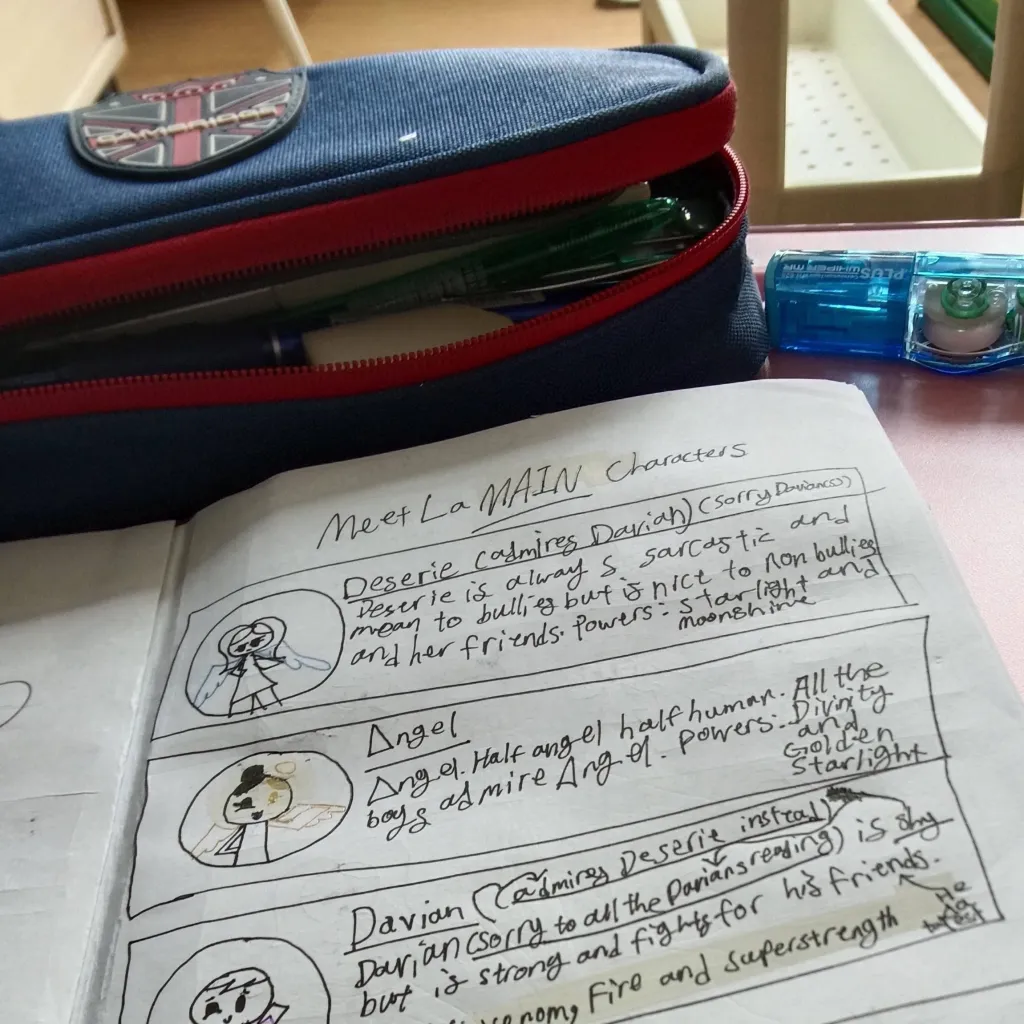 CAMBRIDGE
PLUS
WHIPER MR
Meet La MAIN characters
Deserie (admires Davian) (sorry Davian(s))
Deserie is always sarcastic and
mean to bullies but is nice to non bullies
and her friends. Powers: Starlight and
moonshine
Angel
Angel. Half angel half human. All the
boys admire Angel. Powers: Divinity
and
Golden
Starlight
Davian (admires Deserie instead)
Davian (sorry to all the Davians reading) is shy
but is strong and fights for his friends.
venom, Fire and superstrength